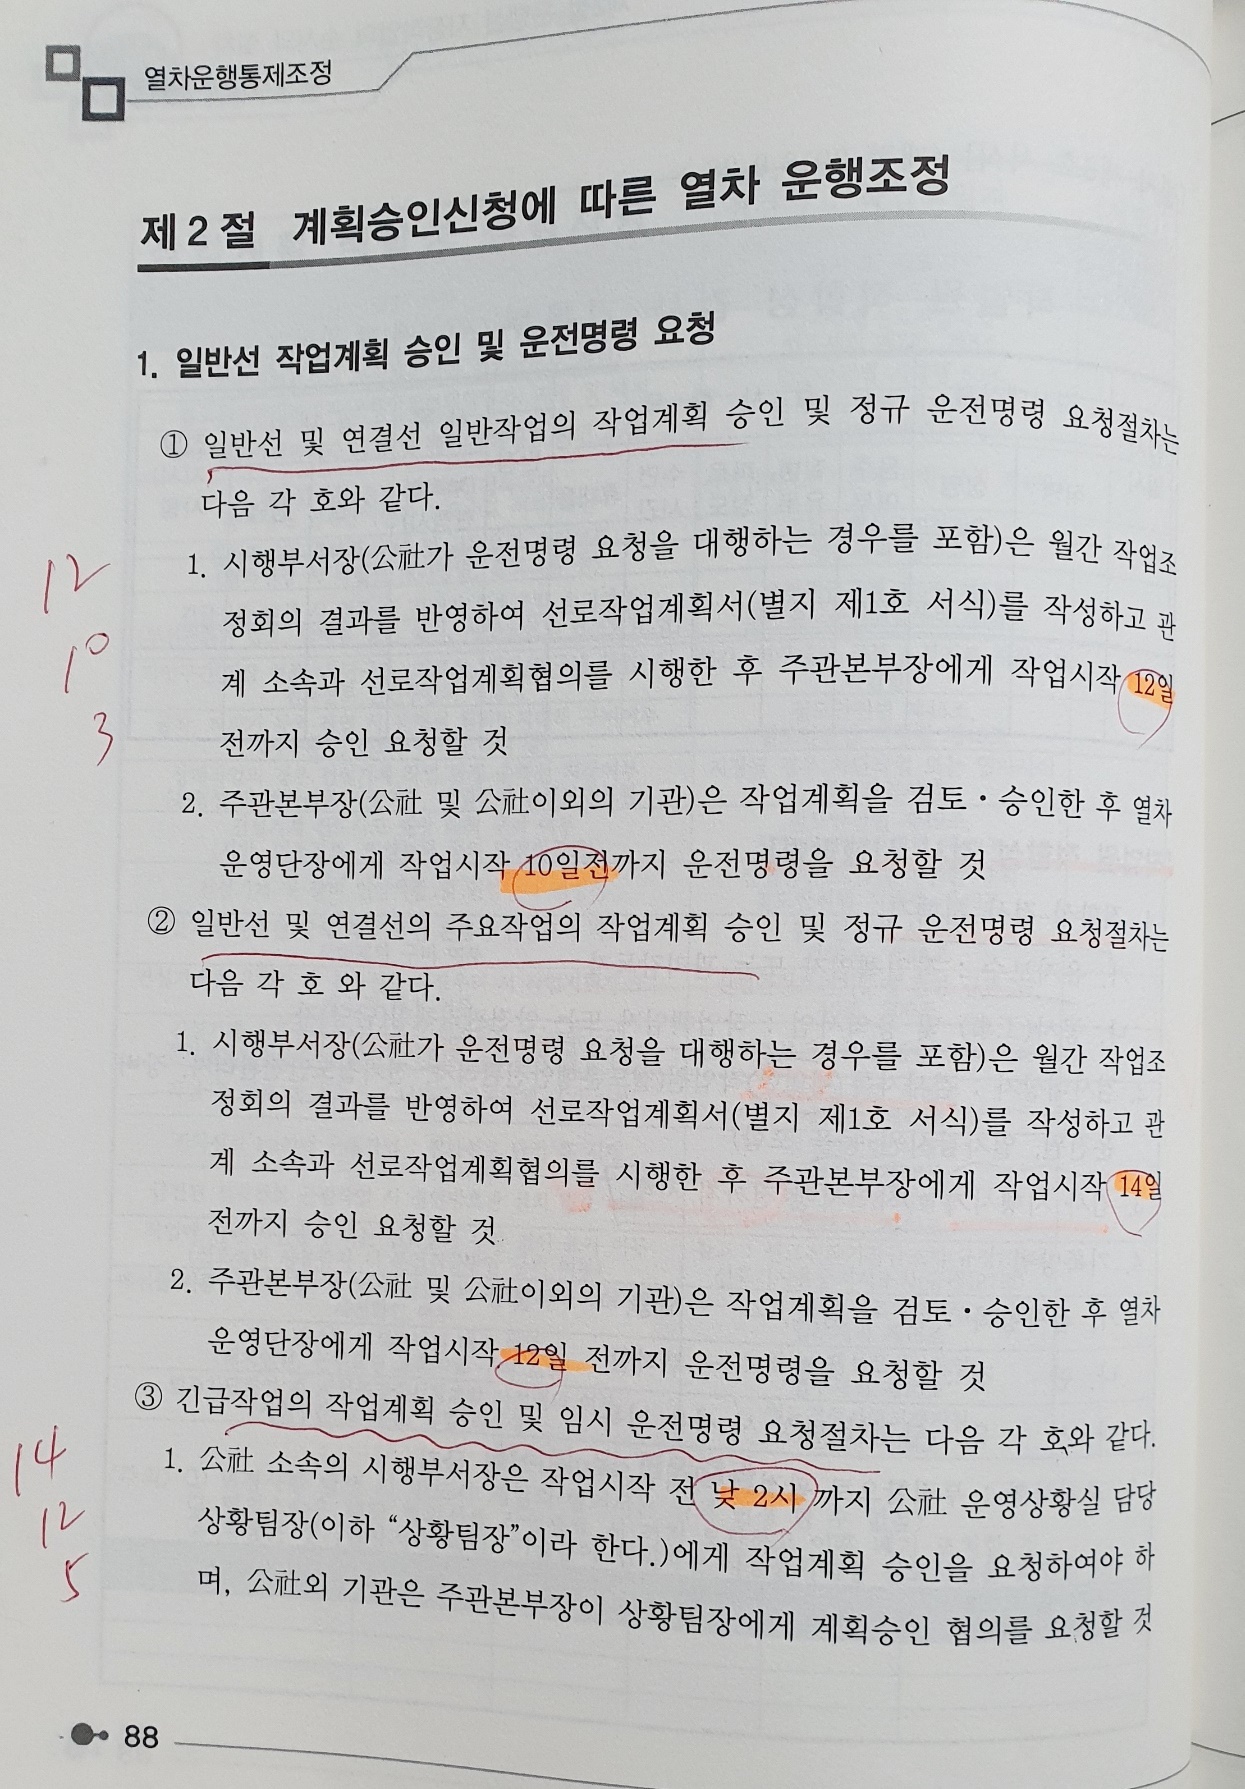 열차운행통제조정
제 2 절 계획승인신청에 따른 열차 운행조정
1. 일반선 작업계획 승인 및 운전명령 요청
① 일반선 및 연결선 일반작업의 작업계획 승인 및 정규 운전명령 요청절차는
다음 각 호와 같다.
1. 시행부서장(公社가 운전명령 요청을 대행하는 경우를 포함)은 월간 작업조
12
정회의 결과를 반영하여 선로작업계획서(별지 제1호 서식)를 작성하고 관
10
계 소속과 선로작업계획협의를 시행한 후 주관본부장에게 작업시작 12일
3
전까지 승인 요청할 것
2. 주관본부장(公社 및 公社이외의 기관)은 작업계획을 검토·승인한 후 열차
운영단장에게 작업시작 10일전까지 운전명령을 요청할 것
② 일반선 및 연결선의 주요작업의 작업계획 승인 및 정규 운전명령 요청절차는
다음 각 호 와 같다.
1. 시행부서장(公社가 운전명령 요청을 대행하는 경우를 포함)은 월간 작업조
정회의 결과를 반영하여 선로작업계획서(별지 제1호 서식)를 작성하고 관
계 소속과 선로작업계획협의를 시행한 후 주관본부장에게 작업시작 14일
전까지 승인 요청할 것
2. 주관본부장(公社 및 公社이외의 기관)은 작업계획을 검토·승인한 후 열차
운영단장에게 작업시작 12일 전까지 운전명령을 요청할 것
③ 긴급작업의 작업계획 승인 및 임시 운전명령 요청절차는 다음 각 호와 같다.
14
1. 公社 소속의 시행부서장은 작업시작 전 낮 2시 까지 公社 운영상황실 담당
12
상황팀장(이하 “상황팀장”이라 한다.)에게 작업계획 승인을 요청하여야 하
5
며, 公社외 기관은 주관본부장이 상황팀장에게 계획승인 협의를 요청할 것
88